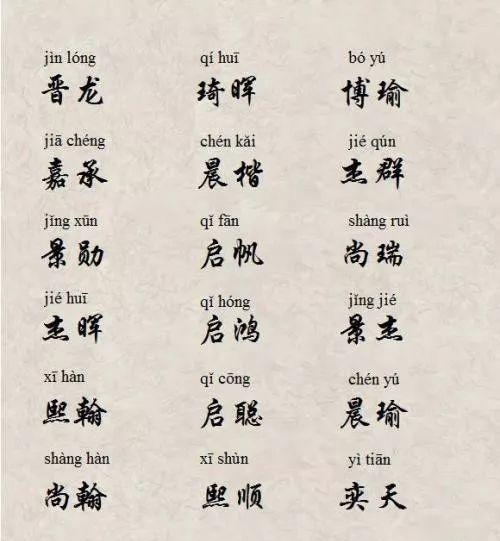 jìn lóng qí huī bó yú
晋龙 琦晖 博瑜
jiā chéng chén kǎi jié qún
嘉承 晨楷 杰群
jǐng xūn qǐ fān shàng ruì
景勋 启帆 尚瑞
jié huī qǐ hóng jǐng jié
杰晖 启鸿 景杰
xī hàn qǐ cōng chén yú
熙翰 启聪 晨瑜
shàng hàn xī shùn yì tiān
尚翰 熙顺 奕天